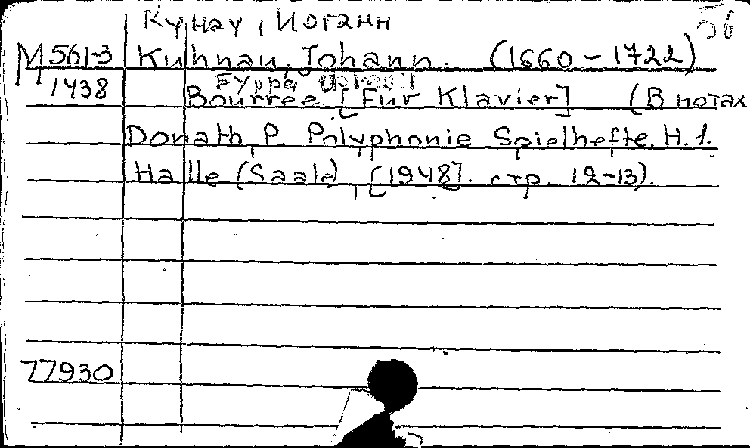 Кунау, Иоганн
М561-3 Kuhnau, Johann. (1660-1722)
1438
Bourrée [Für Klavier] (В нотах
Donath, P. Polyphonie Spielhefte. H. 1.
Halle (Saale), [1948]. стр. 12-13).
77930